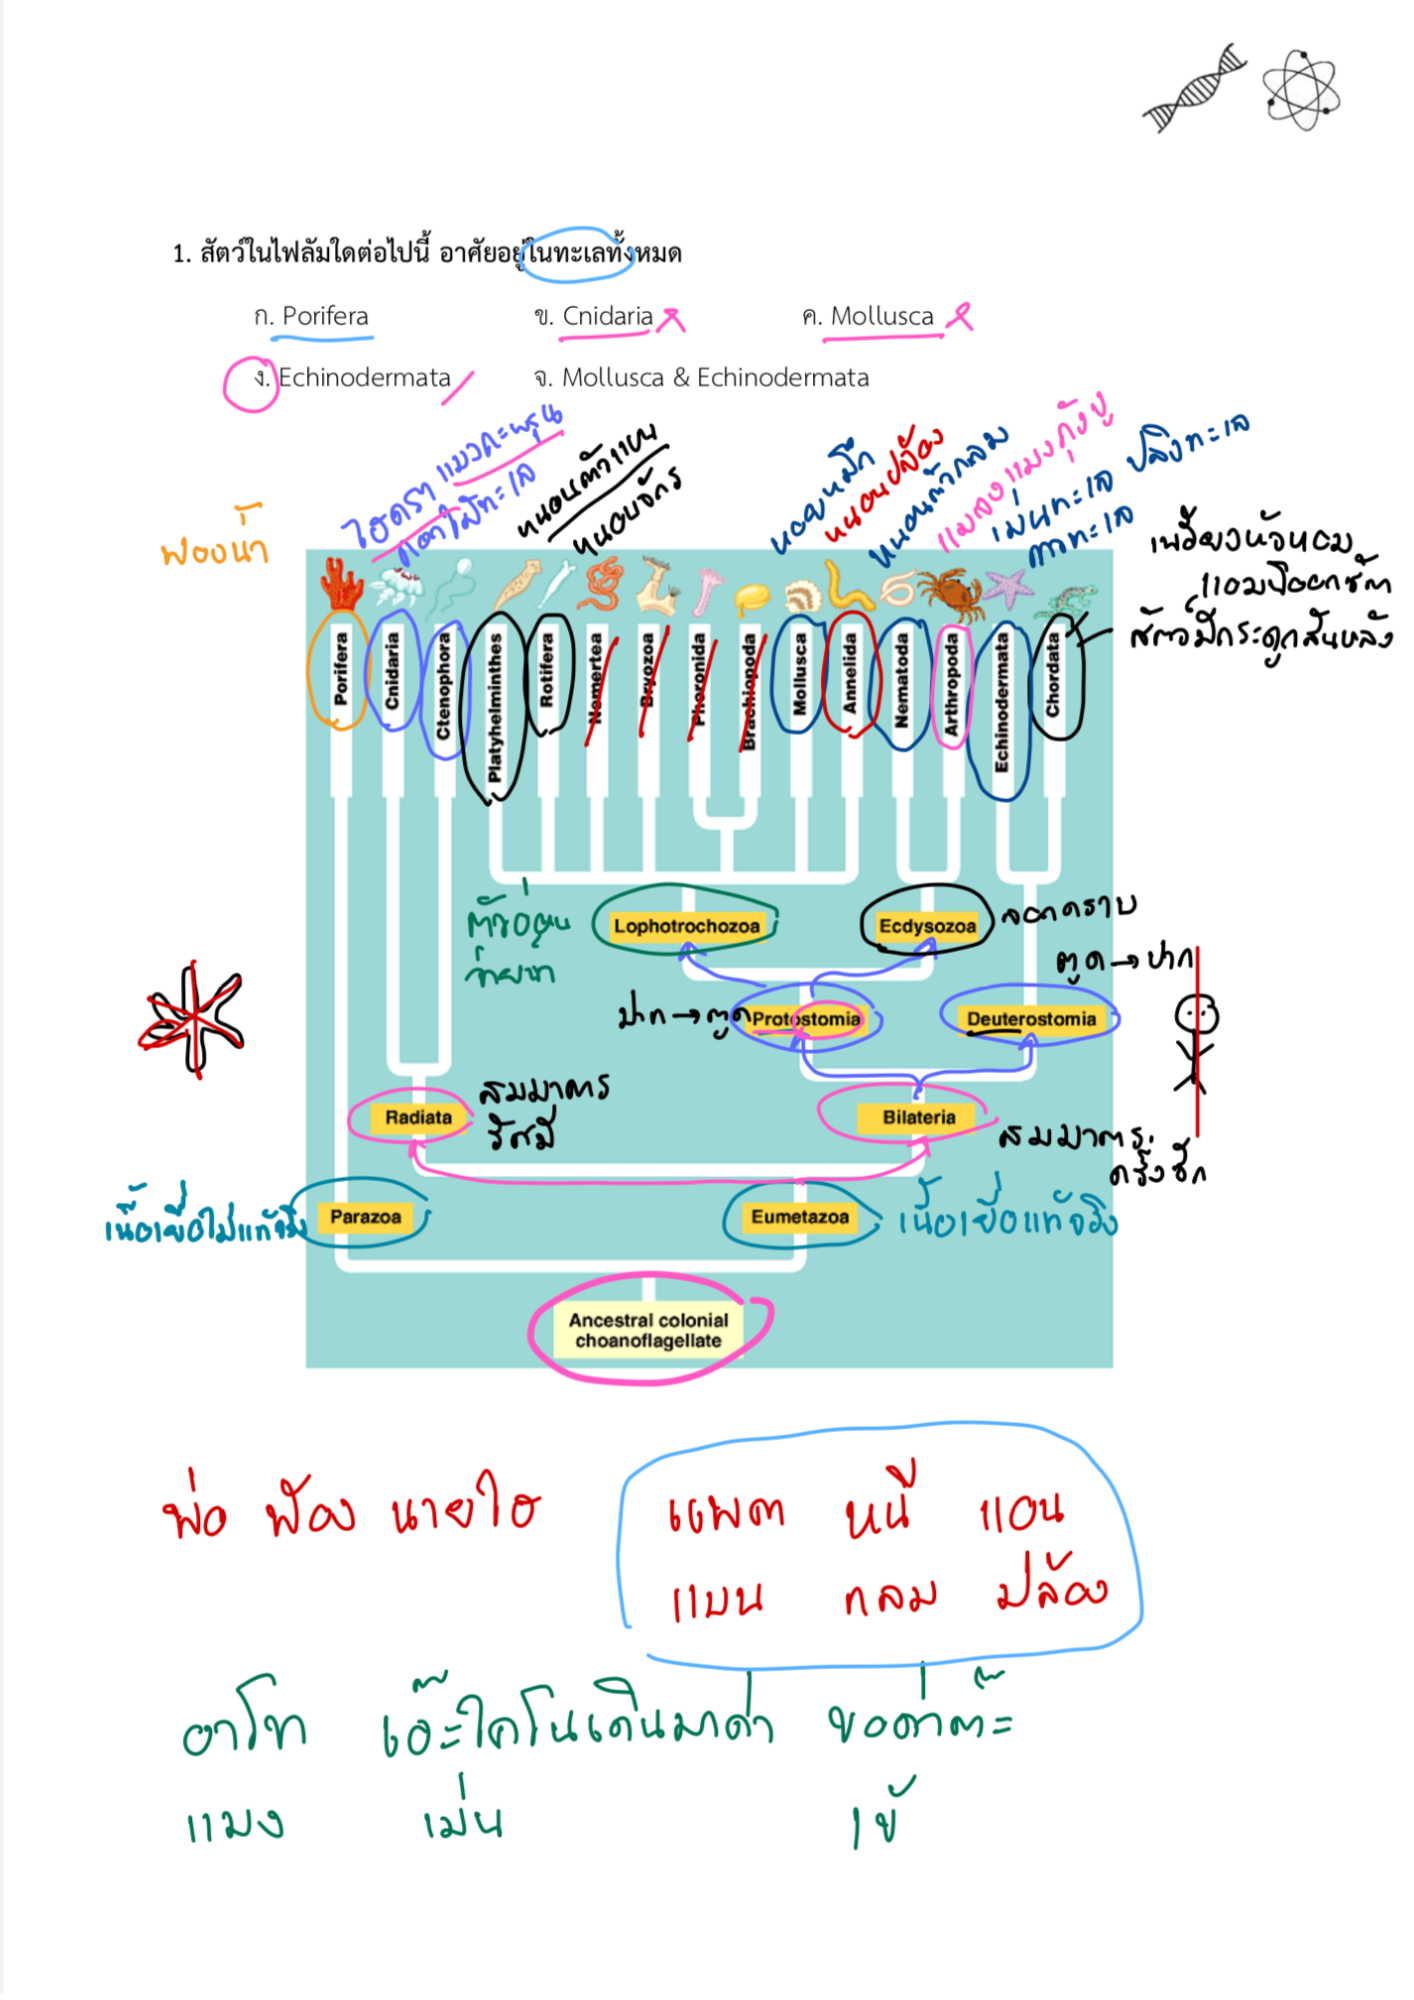 1. สัตว์ในไฟลัมใดต่อไปนี้ อาศัยอยู่ในทะเลทั้งหมด
ก. Porifera ข. Cnidaria ค. Mollusca
ง. Echinodermata จ. Mollusca & Echinodermata
ฟองน้ำ
ไฮดรา แมงกะพรุน
ดอกไม้ทะเล
หนอนตัวแบน
หนอนจักร
หอยหมึก
หนอนปล้อง
หนอนตัวกลม
แมลงแมงกุ้งปู
เม่นทะเล ปลิงทะเล
ดาวทะเล
เพรียงหัวหอม
แอมฟิออกซัส
สัตว์มีกระดูกสันหลัง
Porifera
Cnidaria
Ctenophora
Platyhelminthes
Rotifera
Nemertea
Bryozoa
Phoronida
Brachiopoda
Mollusca
Annelida
Nematoda
Arthropoda
Echinodermata
Chordata
ตัวอ่อน
ว่ายน้ำ
Lophotrochozoa
Ecdysozoa
ลอกคราบ
ตูด→ปาก
ปาก→ตูด
Protostomia
Deuterostomia
Radiata
สมมาตร
รัศมี
Bilateria
สมมาตร
ครึ่งซีก
เนื้อเยื่อไม่แท้จริง
Parazoa
Eumetazoa
เนื้อเยื่อแท้จริง
Ancestral colonial
choanoflagellate
พ่อ ฟ้อง นายไฮ
แพต หนี แอน
แบน กลม ปล้อง
อาโท เอ๊ะใคโนเดินมาด่า ขอด่าต๊ะ
แมง เม่น